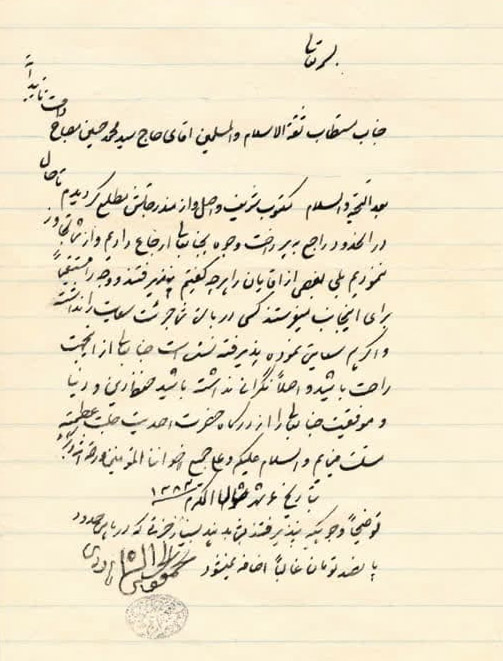 بسمه تعالی
جناب مستطاب ثقة الاسلام والمسلمین آقای حاج سید محمد حسین مصباح دامت تأییداته
بعد التحیة والسلام مکتوب شریف واصل و از مندرجاتش مطلع گردیدم تا بحال
در آنحدود راجع به پرداخت وجوه بجنابعالی ارجاع دادیم و از شما تجاوز
ننمودیم بلی بعضی از آقایان را هر چه گفتیم نپذیرفتند و وجه را مستقیماً
برای اینجانب میفرستند کسی درباره شما جرئت سعایت را نداشته
و اگر هم سعایتی نموده پذیرفته نشده است جنابعالی از اینجهت
راحت باشید و اصلاً نگرانی نداشته باشید حفظ دین و دنیا
و موفقیت جنابعالی را از درگاه حضرت احدیت جلت عظمته
مسئلت مینمایم والسلام علیکم و علی جمیع اخواننا المؤمنین ورحمة الله وبرکاته
بتاریخ ۶ شهر شوال المکرم ۱۳۸۳
توضیحاً وجوهیکه نپذیرفتند بشما بدهند بسیار جزئی که در ماهی حدود
پانصد تومان غالباً اضافه نمیشود
محمود الحسینی الشاهرودی